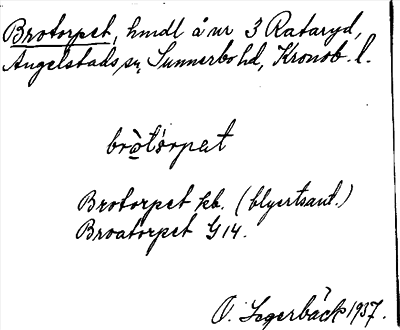 Brotorpet, hmdl å nr 3 Rataryd,
Angelstads sn, Sunnerbo hd, Kronob. l.
bròtòrpat
Brotorpet kb. (blyertsant.)
Broatorpet G 14.
O. Lagerbäck 1937.